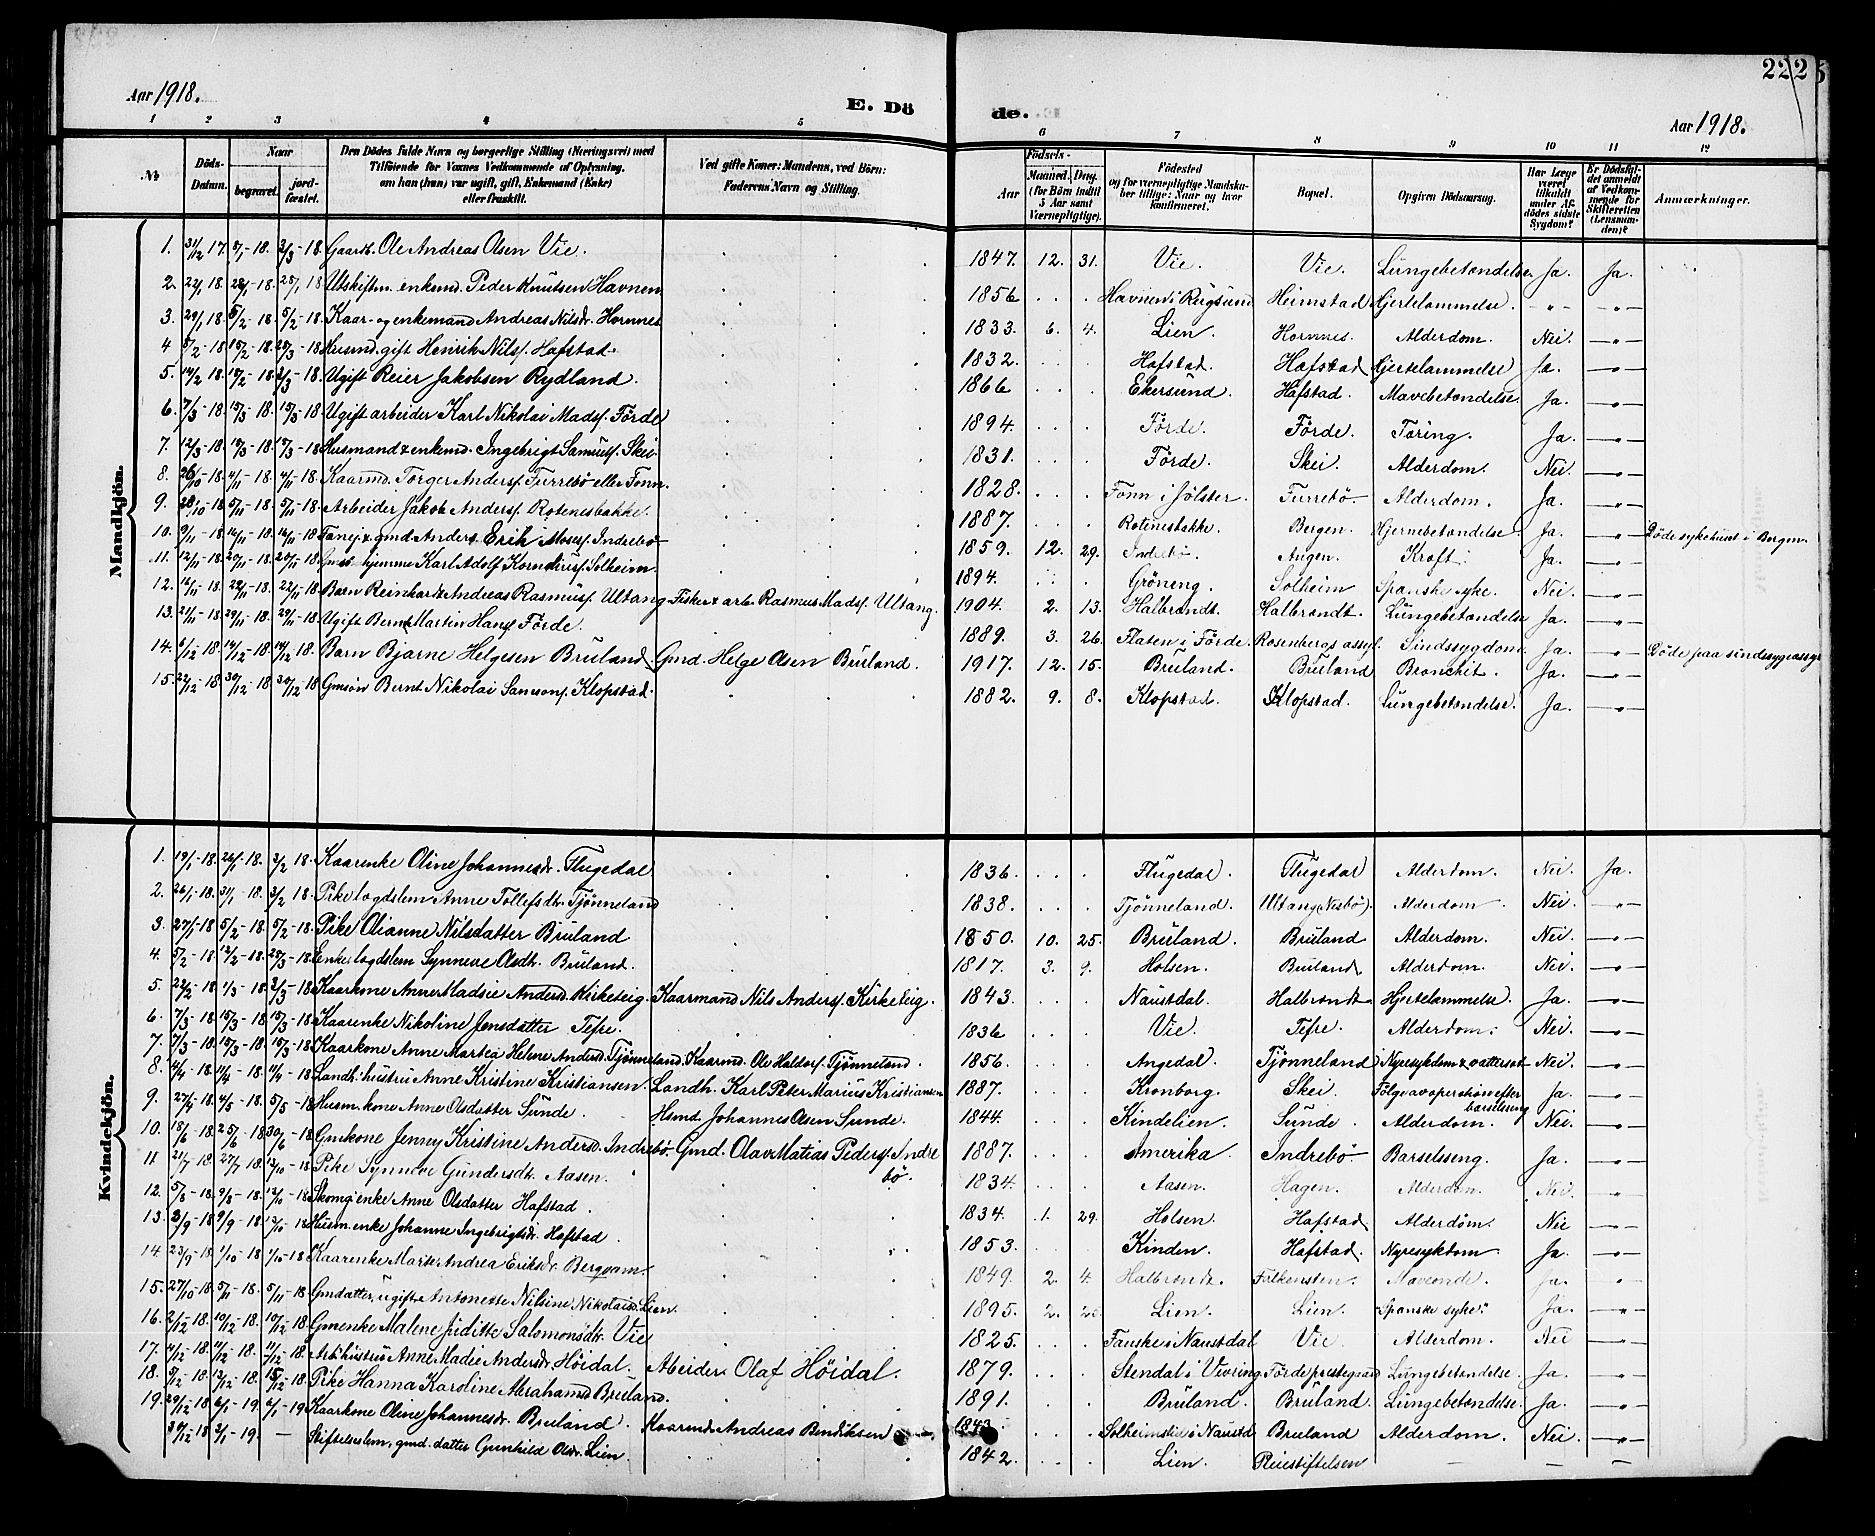 222
Aar 1918.
E. Dö
de.
Aar 1918.
1 2 3 4 5 6 7 8 9 10 11 12
No
Döds-Datum.
Naar
begravet.
jordfæstet.
Den Dödes fulde Navn og borgerlige Stilling (Næringsvei) med Tilföiende for Voxnes Vedkommende af Oplysning, om han (hun) var ugift, gift, Enkemand (Enke) eller fraskilt.
Ved gifte Koner: Mandens, ved Börn: Faderens Navn og Stilling.
Födsels-
Aar
Maaned. Dag.
(for Börn indtil 5 Aar samt Værnepligtige).
Födested og for værnepligtige Mandskaber tillige: Naar og hvor konfirmeret.
Bopæl.
Opgiven Dödsaarsag.
Har Læge været tilkaldt under Afdödes sidste Sygdom?
Er Dödsfaldet anmeldt af Vedkommende for Skifteretten (Lensmanden)?
Anmærkninger.
Mandkjön.
1. 31/12 17. 5/1-18. 3/3-18. Gaardb. Ole Andreas Olsen Vie. 1847. 12. 31. Vie. Vie. Lungebetendelse. Ja. Ja.
2. 22/1 18. 28/1-18. 28/1 18 Utskiftm. enkemd. Peder Knutsen Havnen 1856 Havnen i Rugsund Heimstad Hjertelammelse. -"- -"-
3. 29/1 18. 5/2-18. 5/2-18. Kaar- og enkemand Andreas Nilsdr. Hornnes 1833. 6. 4. Lien. Hornnes. Alderdom. Nei. -"-
4 5/2-18 15/2-18. 25/3-18 Husmd. gift Henrik Nilsf. Hafstad. 1832. Hafstad. Hafstad Hjertelammelse Ja. -"-
5. 14/2 18. 18/2-18. 3/3-18. Ugift Reier Jakobsen Rydland. 1866 Ekersund. Hafstad. Mavebetendelse. Ja. -"-
6. 7/3-18. 15/3-18. 15/3-18. Ugift arbeider Karl Nikolai Madsf. Förde 1894. Förde. Förde. Tæring. Ja. -"-
7. 12/3-18. 17/3-18. 17/3-18 Husmand & enkemd. Ingebrigt Samuelsf. Skei. 1831. Förde. Skei. Alderdom. Nei. -"-
8. 26/10-18. 4/11-18. 4/11-18. Kaarmd. Torger Andersf. Furrebö eller Fonn. 1828. Fonn i Jölster. Furrebö. Alderdom. Ja. -"-
9. 28/10-18. 5/11-18. 5/11-18. Arbeider Jakob Andersf. Rotenesbakke. 1887. Rotenesbakke. Bergen. Hjernebetendelse. Ja. -"- Döde sykehuset i Bergen.
10. 9/11-18 16/11-18. 16/11-18 Fanej. & gmd Anders Erik Mosesf. Indrebö 1859. 12. 29. Indrebö. Angen. Kræft. Ja. -"-
11. 12/11-18. 20/11-18. 20/11-18. hjemme Karl Adolf Korneliusf. Solheim. 1894. Gröneng. Solheim Spanske syke. Nei. -"-
12. 16/11-18. 22/11-18. 22/11-18. Barn Reinhardt Andreas Rasmusf. Ultang. Fisker & arb. Rasmus Madsf. Ultang. 1904. 2. 13. Halbrendt. Halbrendt. Lungebetendelse Ja. -"-
13. 21/11-18. 29/11-18. 29/11-18. Ugift Bernt Martin Hansf. Förde. 1889. 3. 26. Flaten i Förde. Rosenbergs asyl. Sindssygdom. Ja. -"- Döde paa sindssygeasyl
14. 6/12-18. 14/12-18. 14/12 18. Barn Bjarne Helgesen Bruland. Gmd. Helge Olsen Bruland. 1917. 12. 15. Bruland. Bruland Bronchit. Ja. -"-
15. 22/12-18. 30/12-18. 30/12-18. Gmsön Bernt Nikolai Samsonsf. Klopstad. 1882. 9. 8. Klopstad. Klopstad. Lungebetendelse. Ja. -"-
Kvindekjön.
1. 19/1-18. 26/1-18. 3/2 18. Kaarenke Oline Johannesdr. Flugedal 1836. Flugedal. Flugedal Alderdom. Nei. Ja.
2. 26/1-18. 31/1 18. 3/2 18. Pike lægdslem Anne Tollefsdtr. Tjönneland 1838. Tjönneland. Ultang (Nesbö). Alderdom Nei -"-
3. 27/1-18 5/2-18. 5/2-18. Pike Olianne Nilsdatter Bruland 1850. 10. 25. Bruland. Bruland Alderdom. Nei. -"-
4. 5/2-18 12/2-18. 25/3-18 Enke lægdslem Synneve Olsdtr. Bruland. 1817. 3. 9. Holsen. Bruland. Alderdom. Nei. -"-
5. 22/2-18 1/3-18 3/3-18 Kaarkone Anne Madsie Andersd. Kirketeig. Kaarmand Nils Andersf. Kirketeig. 1843. Naustdal. Halbrendt Hjertelammelse. Ja. -"-
6. 7/3-18 15/3-18 15/3-18 Kaarenke Nikoline Jensdatter Tefre. 1836 Vie. Tefre. Alderdom. Nei. -"-
7. 7/3-18. 15/3-18 15/3-18 Kaarkone Anne Martea Helene Andersd. Tjönneland. Kaarmd. Ole Haldorsf. Tjönneland. 1856. Angedal. Tjönneland Nyresykdom & vattersot Nei. -"-
8. 4/4-18. 11/4-18 11/4-18 Landh. hustru Anne Kristine Kristiansen. Landh. Karl Peter Marius Kristiansen 1887. Kronborg. Skei. Fölge av operation efter barselseng Ja. -"-
9. 27/4-18. 4/5-18. 5/5-18 Husm. kone Anne Olsdatter Sunde. Hsmd. Johannes Olsen Sunde. 1844. Kindelien. Sunde. Alderdom. Nei. -"-
10. 18/6-18. 25/6 18 30/6-18 Gmkone Jenny Kristine Andersd. Indrebö. Gmd. Olav Matias Pedersf. Indrebö. 1887. Amerika. Indrebö. Barselseng. Ja. -"-
11 21/7 18. 27/7 18. 13/10-18 Pike Synneve Gundersdtr. Aasen. 1834. Aasen. Hagen. Alderdom. Nei. -"-
12. 5/8-18. 9/8-18. Skomg. enke Anne Olsdatter Hafstad. 1834. 1. 29. Holsen. Hafstad. Alderdom. Nei -"-
13. 3/9-18 9/9-18. 13/10-18 Husm. enke Johanne Ingebrigtsdr. Hafstad. 1853. Kinden. Hafstad. Nyresykdom Ja. -"-
14 23/9-18. 1/10-18 1/10-18 Kaarenke Marte Andrea Eriksdr. Bergum. 1849. 2. 4. Halbrendt. Falkensten. Maveonde. Ja. -"-
15. 27/10-18 5/11-18. 5/11-18 Gmdatter, ugift Antonette Nilsine Nikolaisd. Lien. 1895. 2. Lien. Lien. "Spanske syke." Ja. -"-
16. 2/12-18 10/12-18 10/12-18 Gmenke Malene Juditte Salomonsdtr. Vie 1825. Fauske i Naustdal Vie. Alderdom. Nei -"-
17. 4/12-18. 11/12-18. 11/12-18. Arb. hustru Anne Madie Andersdr. Höidal. Abeider Olaf Höidal. 1879. Stendal i Vevring Förde prestegaard Lungebetendelse. Ja. -"-
18. 9/12-18. 13/12-18 15/12-18. Pike Hanna Karoline Abrahamsd. Bruland. 1891. Bruland. Bruland. Lungebetendelse. Ja. -"-
19. 29/12-18 6/1-19. 6/1-19 Kaarkone Oline Johannesdr. Bruland. Kaarmd. Andreas Bendiksen 1843. Solheimslie i Naustd. Bruland Alderdom. Nei. -"-
30/12-18 3/1-19. — Stiftelseslem, gmd. datter Gunhild Olsdr. Lien. 1842. Lien. Pleiestiftelsen — —